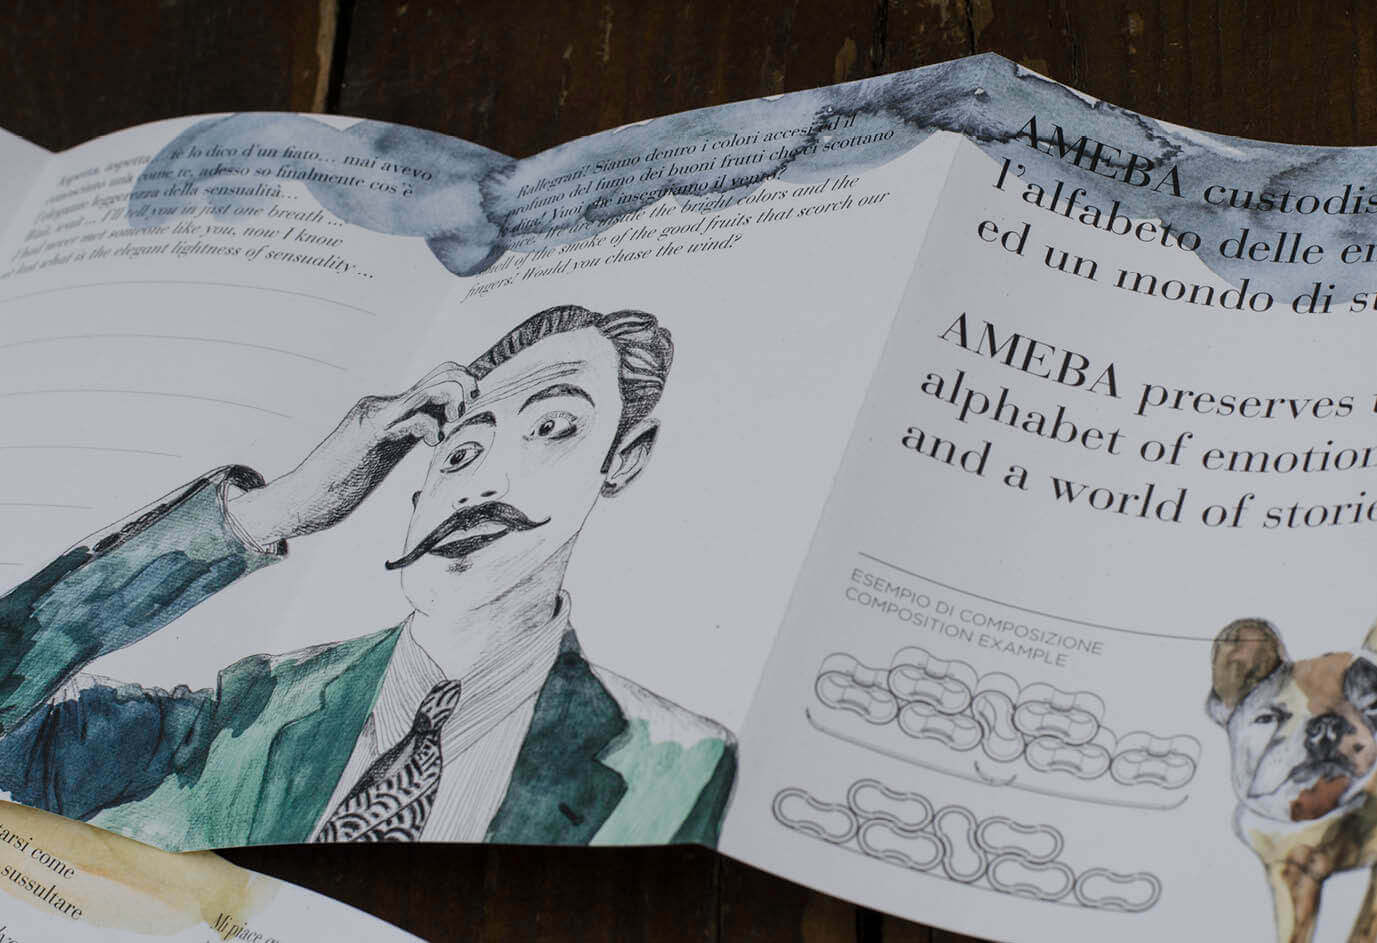 Aspetta, aspetta ... te lo dico d'un fiato... mai avevo
conosciuto una come te, adesso so finalmente cos'è
l'elegante leggerezza della sensualità...
Wait, wait ... I'll tell you in just one breath ...
I had never met someone like you, now I know
at last what is the elegant lightness of sensuality ...
Rallegrati! Siamo dentro i colori accesi ed il
profumo del fumo dei buoni frutti che ci scottano
le dita! Vuoi che inseguiamo il vento?
We are inside the bright colors and the
smell of the smoke of the good fruits that scorch our
fingers! Would you chase the wind?
AMEBA custodis
l'alfabeto delle em
ed un mondo di st
AMEBA preserves t
alphabet of emotion
and a world of storie
ESEMPIO DI COMPOSIZIONE
COMPOSITION EXAMPLE
tarsi come
sussultare
Mi piace